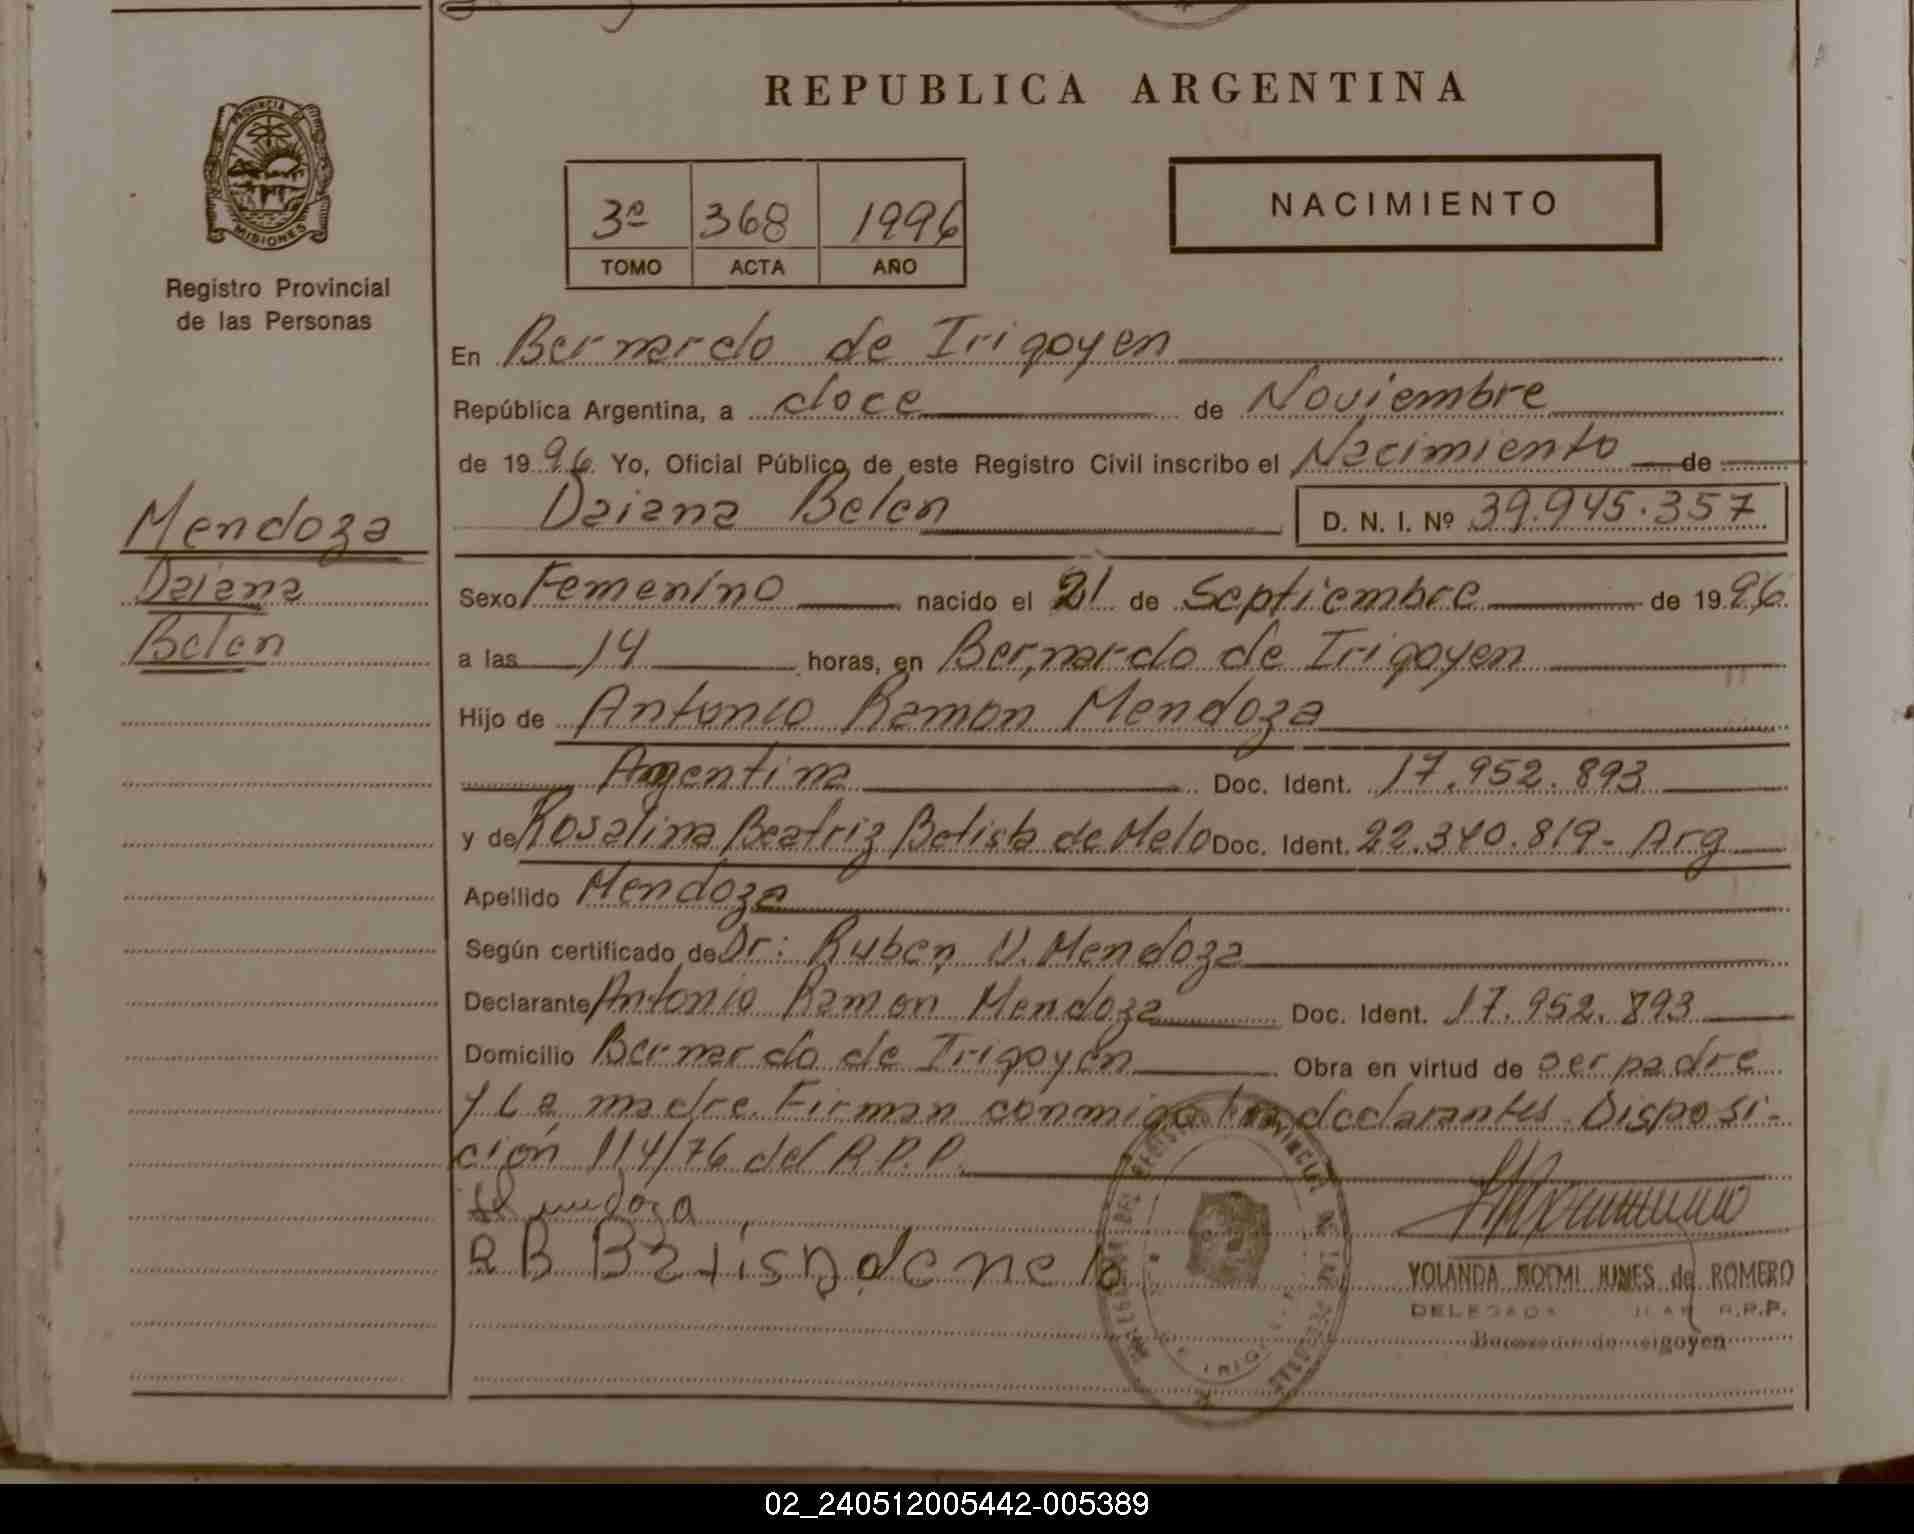 REPUBLICA ARGENTINA
PROVINCIA DE
MISIONES
Registro Provincial
de las Personas
3º 368 1996
TOMO ACTA AÑO
NACIMIENTO
En Bernardo de Irigoyen
República Argentina, a doce de Noviembre
de 1996 Yo, Oficial Público de este Registro Civil inscribo el Nacimiento de
Daiana Belen D. N. I. Nº 39.945.357
Mendoza
Daiana
Belen
Sexo Femenino nacido el 21 de Septiembre de 1996
a las 14 horas, en Bernardo de Irigoyen
Hijo de Antonio Ramon Mendoza
Argentina Doc. Ident. 17.952.893
y de Rosalina Beatriz Batista de Melo Doc. Ident. 22.340.819- Arg
Apellido Mendoza
Según certificado de Dr: Ruben N. Mendoza
Declarante Antonio Ramon Mendoza Doc. Ident. 17.952.893
Domicilio Bernardo de Irigoyen Obra en virtud de ser padre
y La madre. Firman conmigo los declarantes- Disposi-
ción 114/76 del R.P.P.
R B Batista de melo
YOLANDA NOEMI NUNES de ROMERO
DELEGADA R.P.P.
02_240512005442-005389